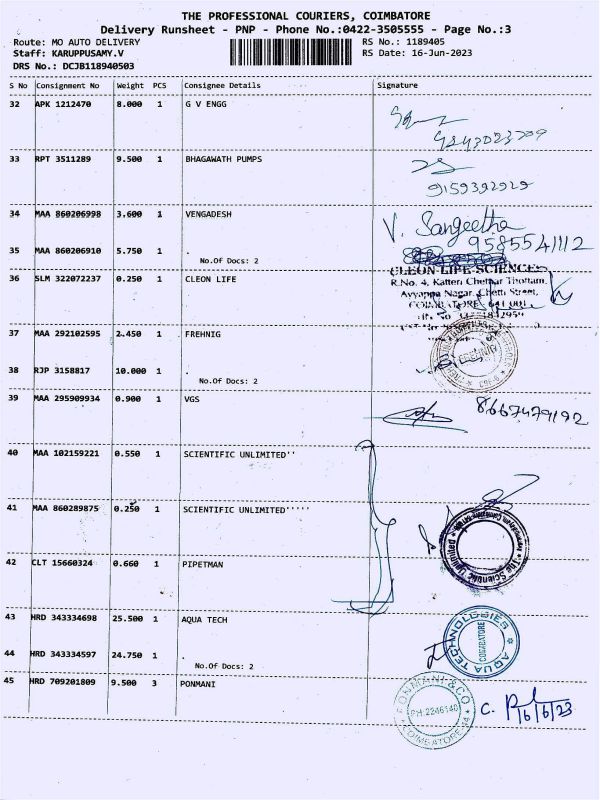 THE PROFESSIONAL COURIERS, COIMBATORE
Delivery Runsheet - PNP - Phone No.:0422-3505555 - Page No.:3
Route: MO AUTO DELIVERY RS No.: 1189405
Staff: KARUPPUSAMY.V RS Date: 16-Jun-2023
DRS No.: DCJB118940503
S No Consignment No Weight PCS Consignee Details Signature
32 APK 1212470 8.000 1 G V ENGG
33 RPT 3511289 9.500 1 BHAGAWATH PUMPS
9159392929
34 MAA 860206998 3.600 1 VENGADESH V. Sangeetha
9585541112
35 MAA 860206910 5.750 1 .
No.Of Docs: 2
36 SLM 322072237 0.250 1 CLEON LIFE
CLEON LIFE SCIENCES
R.No. 4, Katteri Chettiar Thottam,
Ayyappa Nagar, Chetti Street,
COIMBATORE - 641 001
37 MAA 292102595 2.450 1 FREHNIG
38 RJP 3158817 10.000 1 .
No.Of Docs: 2
39 MAA 295909934 0.900 1 VGS 8667479192
40 MAA 102159221 0.550 1 SCIENTIFIC UNLIMITED''
41 MAA 860289875 0.250 1 SCIENTIFIC UNLIMITED'''''
The Scientific Unlimited
42 CLT 15660324 0.660 1 PIPETMAN
43 HRD 343334698 25.500 1 AQUA TECH
AQUA TECHNOLOGIES
COIMBATORE
44 HRD 343334597 24.750 1 .
No.Of Docs: 2
45 HRD 709201809 9.500 3 PONMANI
PONMANI & CO
PH:2246140
COIMBATORE-44
16/6/23